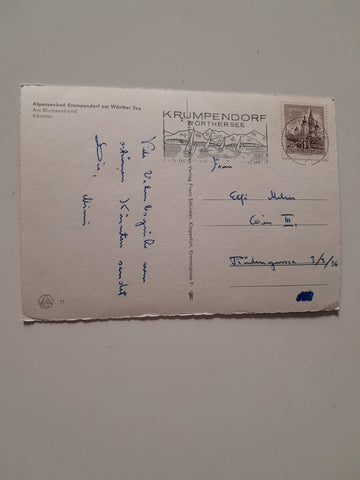 Alpenseebad Krumpendorf am Wörther See
Am Blumenstrand
Kärnten
KRUMPENDORF
WÖRTHERSEE
Viele Urlaubsgrüße vom
schönen Kärnten sendet
Dir,
Mimi
Verlag Franz Schilcher, Klagenfurt, Kramergasse 9
Frau
Elfi
Wien III.
3/2/36
71